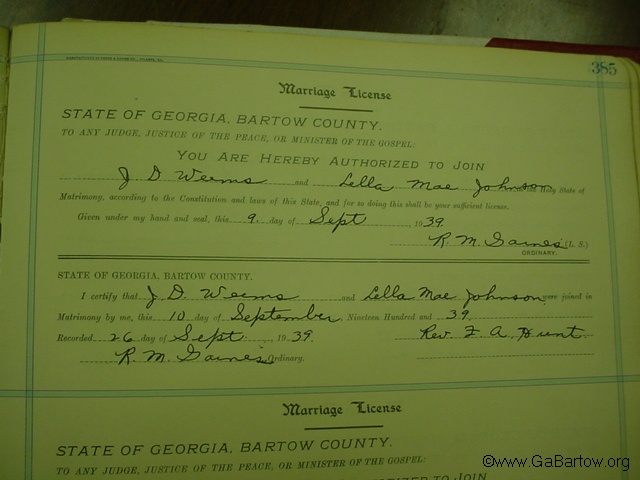 385
Marriage License
STATE OF GEORGIA, BARTOW COUNTY.
TO ANY JUDGE, JUSTICE OF THE PEACE, OR MINISTER OF THE GOSPEL:
YOU ARE HEREBY AUTHORIZED TO JOIN
J D Weems and Lella Mae Johnson Holy State of
Matrimony, according to the Constitution and laws of this State, and for so doing this shall be your sufficient license.
Given under my hand and seal, this 9 day of Sept, 1939.
R. M. Gaines (L. S.)
ORDINARY.
STATE OF GEORGIA, BARTOW COUNTY.
I certify that J. D. Weems and Lella Mae Johnson were joined in
Matrimony by me, this 10 day of September, Nineteen Hundred and 39.
Recorded 26 day of Sept., 1939. Rev. F. A. Hunt.
R. M. Gaines Ordinary.
Marriage License
STATE OF GEORGIA, BARTOW COUNTY.
TO ANY JUDGE, JUSTICE OF THE PEACE, OR MINISTER OF THE GOSPEL:
©www.GaBartow.org